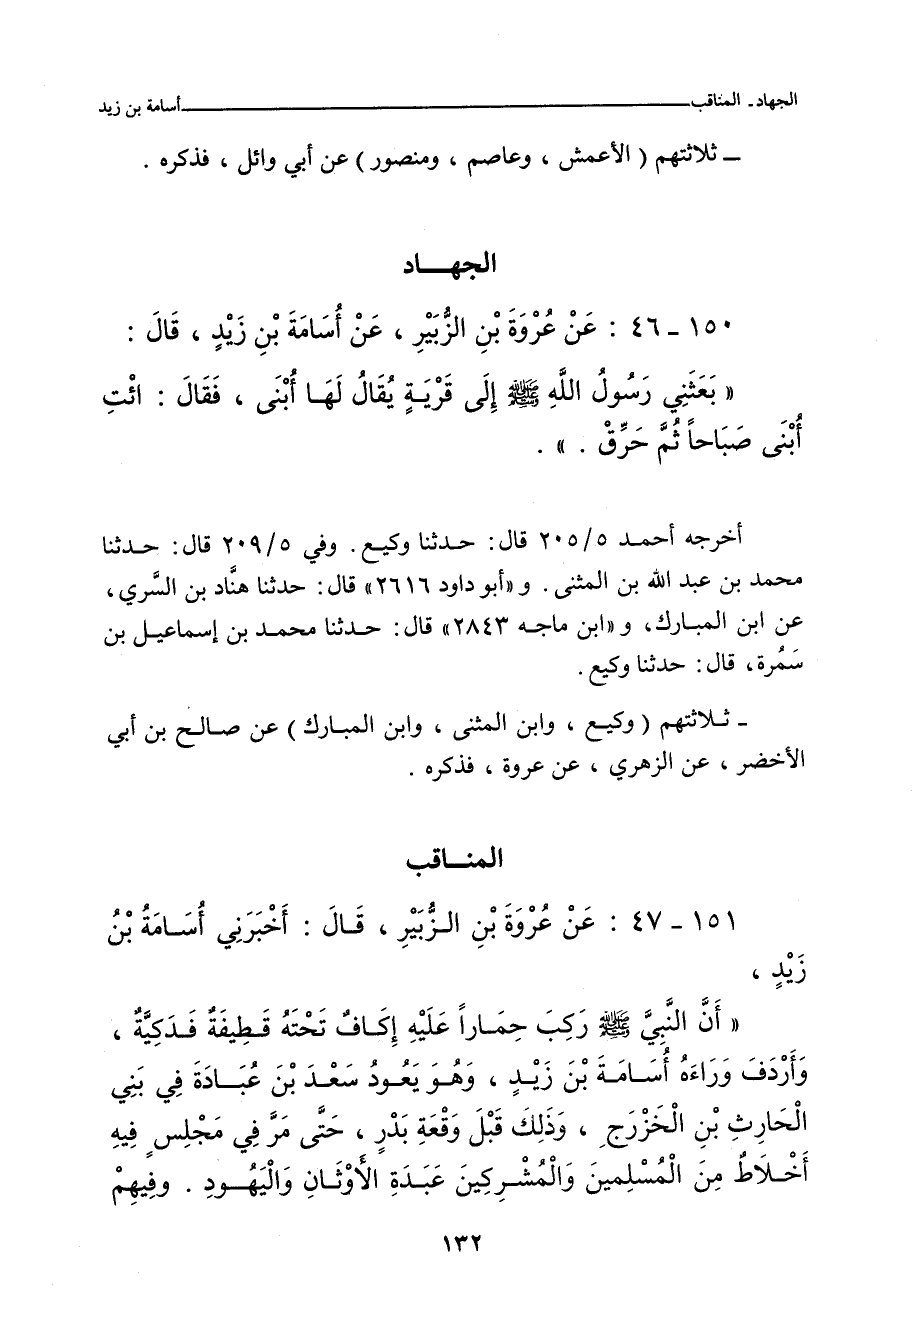 الجهاد ـ المناقب ـــــــــ أسامة بن زيد
ـ ثلاثتهم ( الأعمش ، وعاصم ، ومنصور ) عن أبي وائل ، فذكره .
الجهـــاد
١٥٠ ـ ٤٦ : عَنْ عُرْوَةَ بْنِ الزُّبَيْرِ ، عَنْ أُسَامَةَ بْنِ زَيْدٍ ، قَالَ :
« بَعَثَنِي رَسُولُ اللَّهِ ﷺ إِلَى قَرْيَةٍ يُقَالُ لَهَـا أُبْنَى ، فَقَالَ : ائْتِ
أُبْنَى صَبَاحاً ثُمَّ حَرِّقْ . » .
أخرجه أحمـد ٢٠٥/٥ قال: حـدثنا وكيـع. وفي ٢٠٩/٥ قال: حـدثنا
محمد بن عبد الله بن المثنى. و «أبو داود ٢٦١٦» قال: حدثنا هنَّاد بن السَّري،
عن ابن المبـارك، و «ابن ماجـه ٢٨٤٣» قال: حـدثنا محمـد بن إسماعيـل بن
سَمُرة، قال: حدثنا وكيع.
ـ ثـلاثتهم ( وكيـع ، وابن المثنى ، وابن المبارك ) عن صـالـح بن أبي
الأخضر ، عن الزهري ، عن عروة ، فذكره .
المنـــاقب
١٥١ ـ ٤٧ : عَنْ عُرْوَةَ بْنِ الـزُّبَيْرِ ، قَـالَ : أَخْبَرَنِي أُسَـامَةُ بْنُ
زَيْدٍ ،
« أَنَّ النَّبِيَّ ﷺ رَكِبَ حِمَـاراً عَلَيْهِ إِكَـافٌ تَحْتَهُ قَـطِيفَةٌ فَـدَكِيَّةٌ ،
وَأَرْدَفَ وَرَاءَهُ أُسَـامَـةَ بْنَ زَيْـدٍ ، وَهُـوَ يَعُـودُ سَعْـدَ بْنَ عُبَـادَةَ فِي بَنِي
الْحَارِثِ بْنِ الْخَزْرَجِ ، وَذَلِكَ قَبْلَ وَقْعَةِ بَدْرٍ ، حَتَّى مَرَّ فِي مَجْلِسٍ فِيهِ
أَخْـلَاطٌ مِنَ الْمُسْلِمينَ وَالْمُشْـرِكِينَ عَبَدَةِ الأَوْثَـانِ وَالْيَهُـودِ . وفِيهِمْ
١٣٢